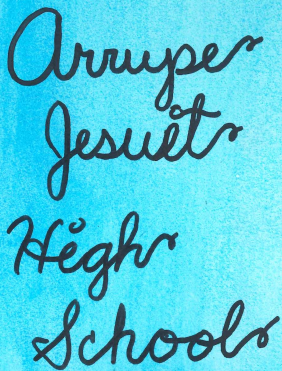 Arrupe
Jesuit
High
School